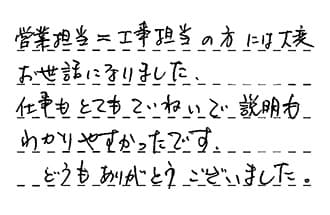 営業担当=工事担当の方には大変
お世話になりました、
仕事もとてもていねいで説明も
わかりやすかったです、
どうもありがとうございました。